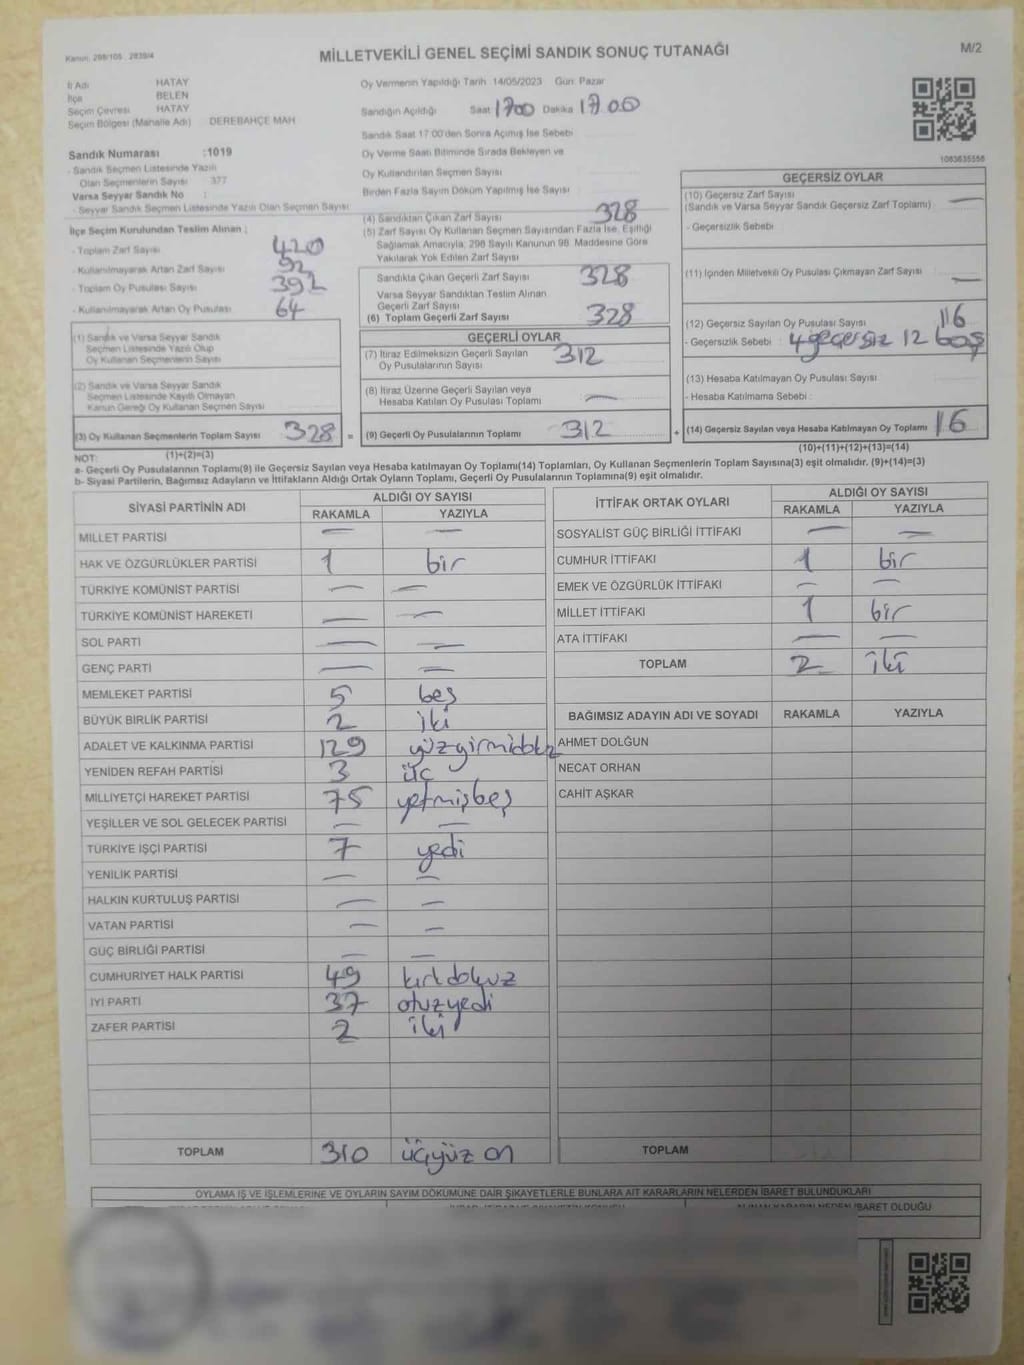 Kanun: 298/105 2839/4
MİLLETVEKİLİ GENEL SEÇİMİ SANDIK SONUÇ TUTANAĞI
M/2
İl Adı HATAY
İlçe BELEN
Seçim Çevresi HATAY
Seçim Bölgesi (Mahalle Adı) DEREBAHÇE MAH
Sandık Numarası :1019
- Sandık Seçmen Listesinde Yazılı
Olan Seçmenlerin Sayısı 377
Varsa Seyyar Sandık No :
- Seyyar Sandık Seçmen Listesinde Yazılı Olan Seçmen Sayısı
Oy Vermenin Yapıldığı Tarih 14/05/2023 Gün: Pazar
Sandığın Açıldığı Saat 1700 Dakika 17.00
Sandık Saat 17:00'den Sonra Açımış İse Sebebi
Oy Verme Saati Bitiminde Sırada Bekleyen ve
Oy Kullandırılan Seçmen Sayısı
Birden Fazla Sayım Döküm Yapılmış İse Sayısı
1083635556
İlçe Seçim Kurulundan Teslim Alınan ;
- Toplam Zarf Sayısı 420
- Kullanılmayarak Artan Zarf Sayısı 92
- Toplam Oy Pusulası Sayısı 392
- Kullanılmayarak Artan Oy Pusulası 64
(1) Sandık ve Varsa Seyyar Sandık
Seçmen Listesinde Yazılı Olup
Oy Kullanan Seçmenlerin Sayısı
(2) Sandık ve Varsa Seyyar Sandık
Seçmen Listesinde Kayıtlı Olmayan
Kanun Gereği Oy Kullanan Seçmen Sayısı
(3) Oy Kullanan Seçmenlerin Toplam Sayısı 328 =
(4) Sandıktan Çıkan Zarf Sayısı 328
(5) Zarf Sayısı Oy Kullanan Seçmen Sayısından Fazla İse, Eşitliği
Sağlamak Amacıyla; 298 Sayılı Kanunun 98. Maddesine Göre
Yakılarak Yok Edilen Zarf Sayısı
Sandıkta Çıkan Geçerli Zarf Sayısı 328
Varsa Seyyar Sandıktan Teslim Alınan
Geçerli Zarf Sayısı
(6) Toplam Geçerli Zarf Sayısı 328
GEÇERLİ OYLAR
(7) İtiraz Edilmeksizin Geçerli Sayılan
Oy Pusulalarının Sayısı 312
(8) İtiraz Üzerine Geçerli Sayılan veya
Hesaba Katılan Oy Pusulası Toplamı —
(9) Geçerli Oy Pusulalarının Toplamı 312 +
GEÇERSİZ OYLAR
(10) Geçersiz Zarf Sayısı
(Sandık ve Varsa Seyyar Sandık Geçersiz Zarf Toplamı) —
- Geçersizlik Sebebi
(11) İçinden Milletvekili Oy Pusulası Çıkmayan Zarf Sayısı —
(12) Geçersiz Sayılan Oy Pusulası Sayısı 116
- Geçersizlik Sebebi : 4 geçersiz 12 boş
(13) Hesaba Katılmayan Oy Pusulası Sayısı
- Hesaba Katılmama Sebebi :
(14) Geçersiz Sayılan veya Hesaba Katılmayan Oy Toplamı 16
NOT: (1)+(2)=(3)
(10)+(11)+(12)+(13)=(14)
a- Geçerli Oy Pusulalarının Toplamı(9) ile Geçersiz Sayılan veya Hesaba katılmayan Oy Toplamı(14) Toplamları, Oy Kullanan Seçmenlerin Toplam Sayısına(3) eşit olmalıdır. (9)+(14)=(3)
b- Siyasi Partilerin, Bağımsız Adayların ve İttifakların Aldığı Ortak Oyların Toplamı, Geçerli Oy Pusulalarının Toplamına(9) eşit olmalıdır.
SİYASİ PARTİNİN ADI ALDIĞI OY SAYISI
RAKAMLA YAZIYLA
MİLLET PARTİSİ — —
HAK VE ÖZGÜRLÜKLER PARTİSİ 1 bir
TÜRKİYE KOMÜNİST PARTİSİ — —
TÜRKİYE KOMÜNİST HAREKETİ — —
SOL PARTİ — —
GENÇ PARTİ — —
MEMLEKET PARTİSİ 5 beş
BÜYÜK BİRLİK PARTİSİ 2 iki
ADALET VE KALKINMA PARTİSİ 129 yüzyirmidokuz
YENİDEN REFAH PARTİSİ 3 üç
MİLLİYETÇİ HAREKET PARTİSİ 75 yetmişbeş
YEŞİLLER VE SOL GELECEK PARTİSİ — —
TÜRKİYE İŞÇİ PARTİSİ 7 yedi
YENİLİK PARTİSİ — —
HALKIN KURTULUŞ PARTİSİ — —
VATAN PARTİSİ — —
GÜÇ BİRLİĞİ PARTİSİ — —
CUMHURİYET HALK PARTİSİ 49 kırkdokuz
İYİ PARTİ 37 otuzyedi
ZAFER PARTİSİ 2 iki
TOPLAM 310 üçyüz on
İTTİFAK ORTAK OYLARI ALDIĞI OY SAYISI
RAKAMLA YAZIYLA
SOSYALİST GÜÇ BİRLİĞİ İTTİFAKI — —
CUMHUR İTTİFAKI 1 bir
EMEK VE ÖZGÜRLÜK İTTİFAKI — —
MİLLET İTTİFAKI 1 bir
ATA İTTİFAKI — —
TOPLAM 2 iki
BAĞIMSIZ ADAYIN ADI VE SOYADI RAKAMLA YAZIYLA
AHMET DOLĞUN
NECAT ORHAN
CAHİT AŞKAR
TOPLAM
OYLAMA İŞ VE İŞLEMLERİNE VE OYLARIN SAYIM DÖKÜMÜNE DAİR ŞİKAYETLERLE BUNLARA AİT KARARLARIN NELERDEN İBARET BULUNDUKLARI
ALINAN KARARIN NEDEN İBARET OLDUĞU